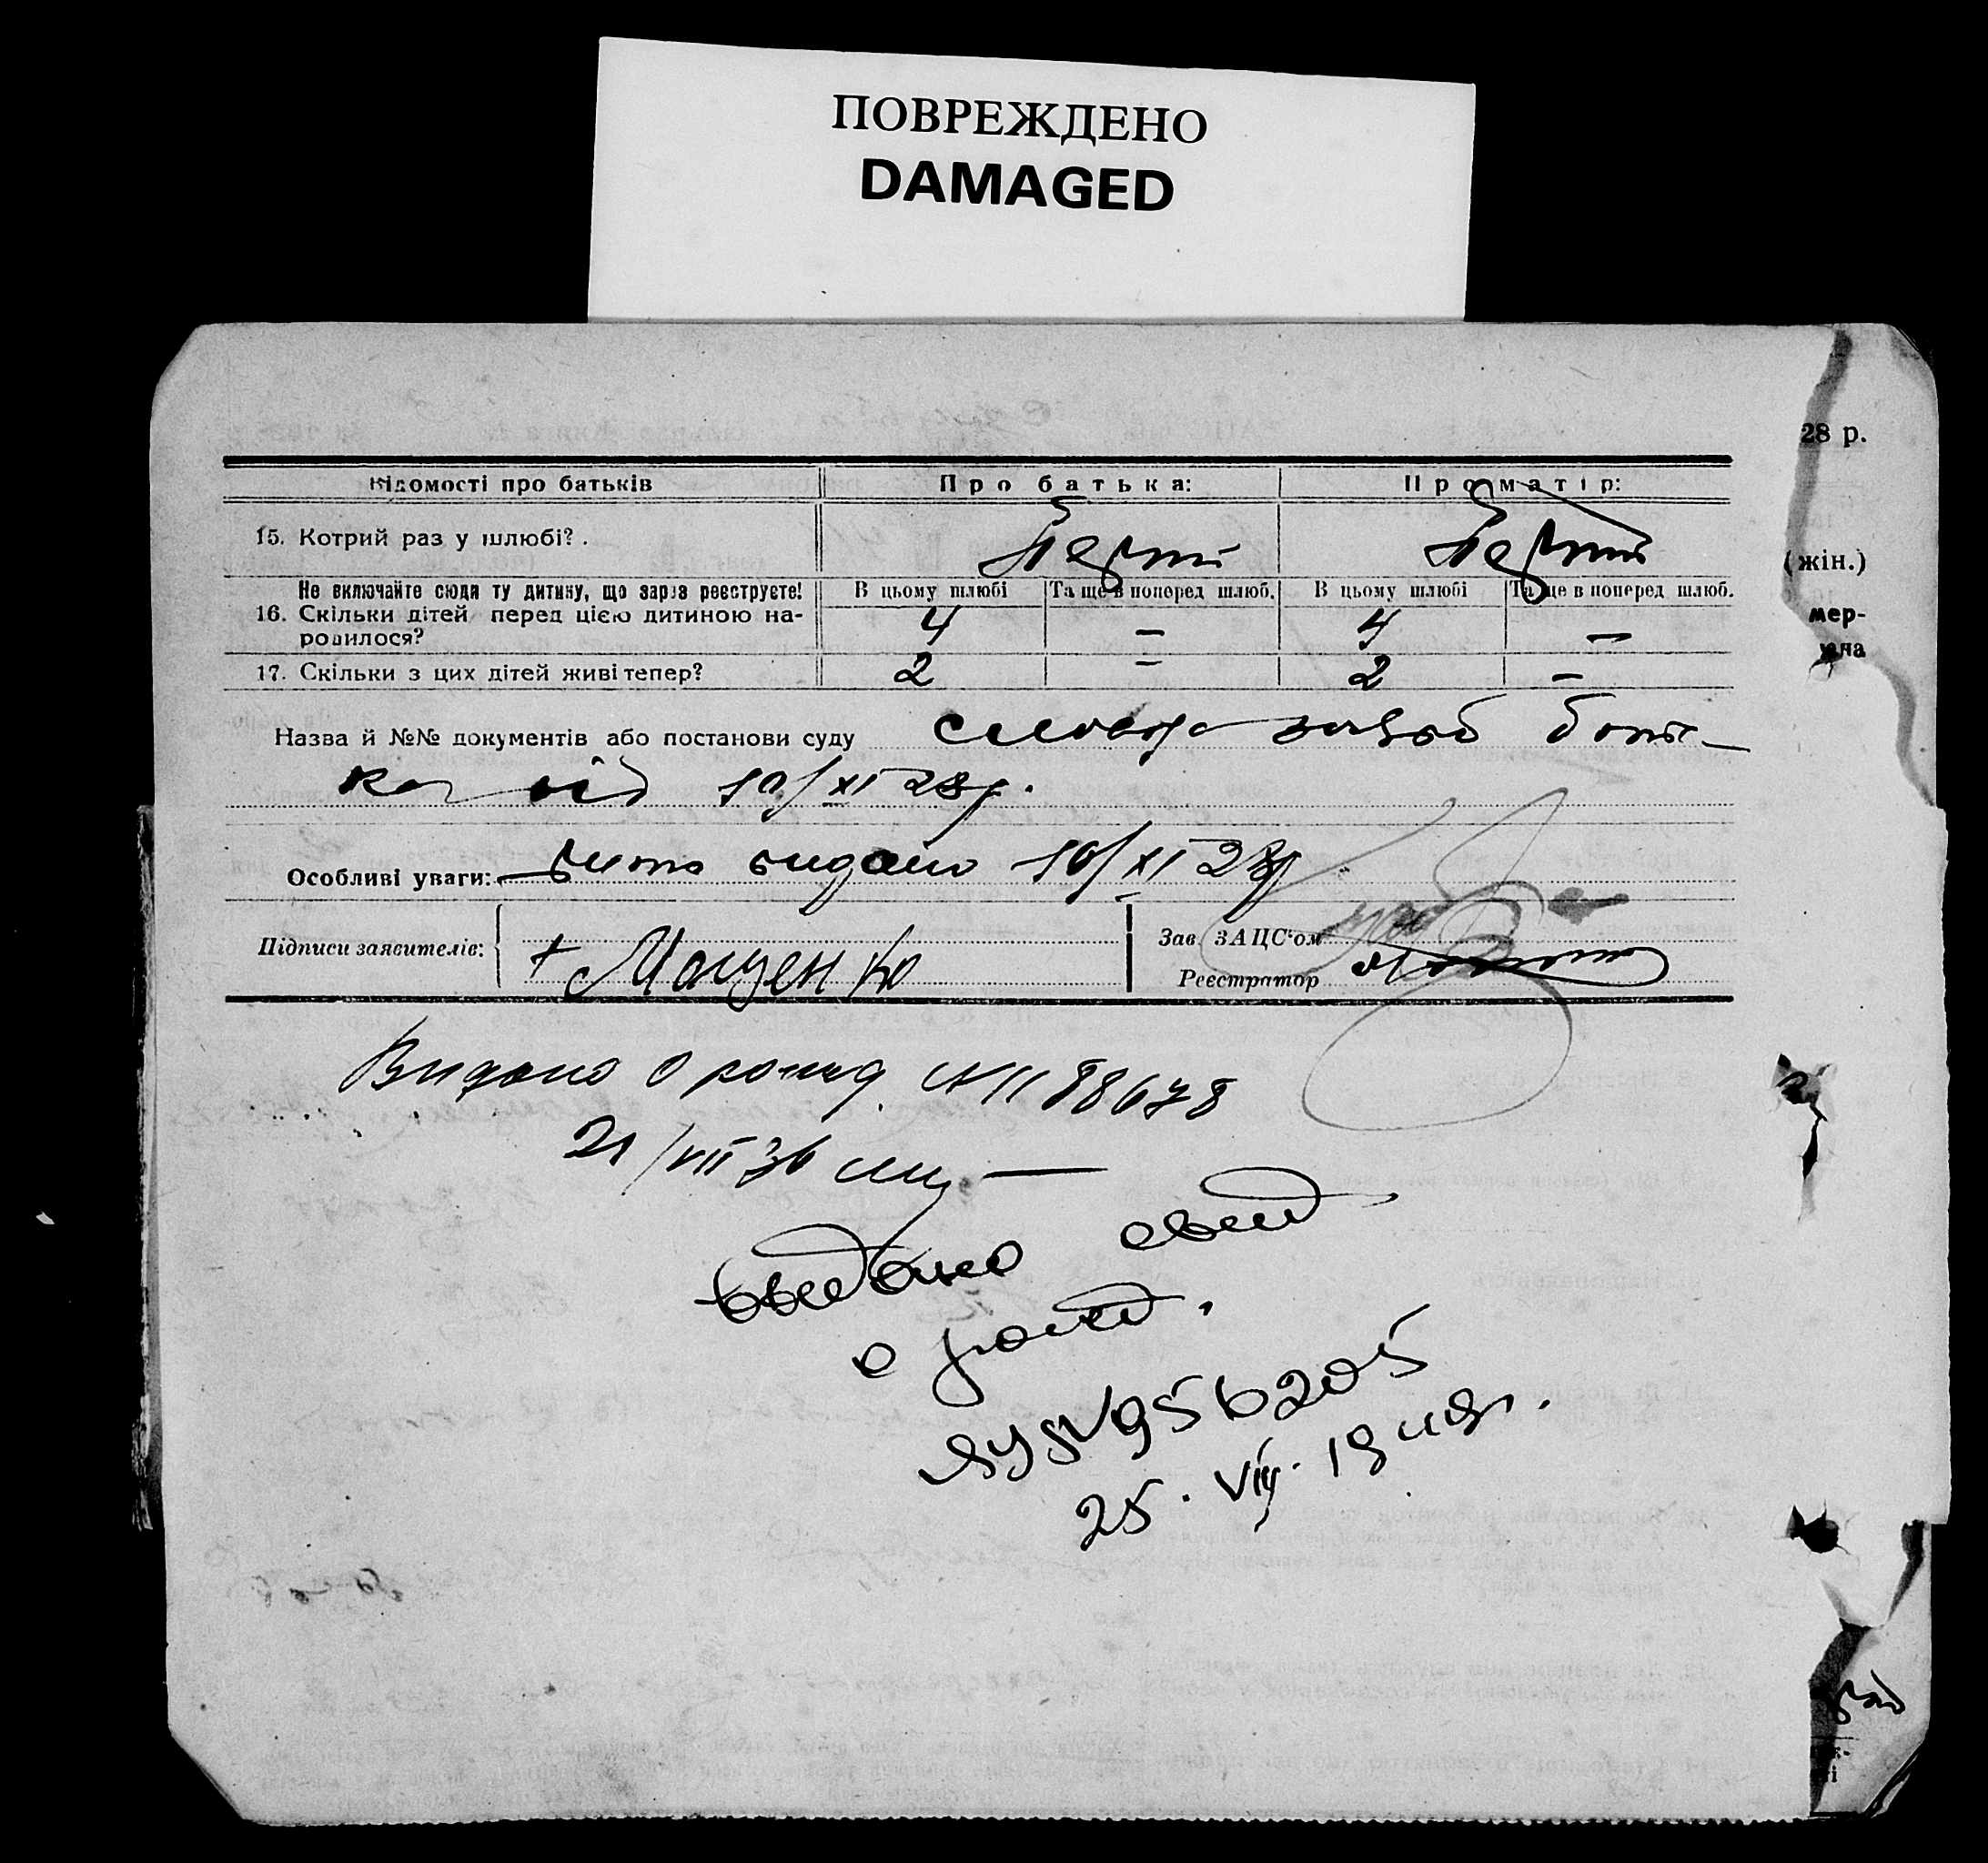 ПОВРЕЖДЕНО
DAMAGED
28 р.
Відомості про батьків
Про батька:
Про матір:
15. Котрий раз у шлюбі? .
Перший
Перший
(жін.)
Не включайте сюди ту дитину, що зараз реєструєте!
В цьому шлюбі
Та ще в поперед шлюб.
В цьому шлюбі
Та ще в поперед шлюб.
16. Скільки дітей перед цією дитиною на-
родилося?
4
—
4
—
мер-
17. Скільки з цих дітей живі тепер?
2
—
2
—
Назва й №№ документів або постанови суду
словесна заява бать-
ка від 10/XI 28 р.
Особливі уваги:
видано 10/XI 28 р.
Підписи заявителів:
+ Маценко
Зав. ЗАЦС'ом
Реєстратор
Видано о рожд. № 1188678
21/VII 36
выдано свид
о рожд.
956205
25. VIII. 1949г.